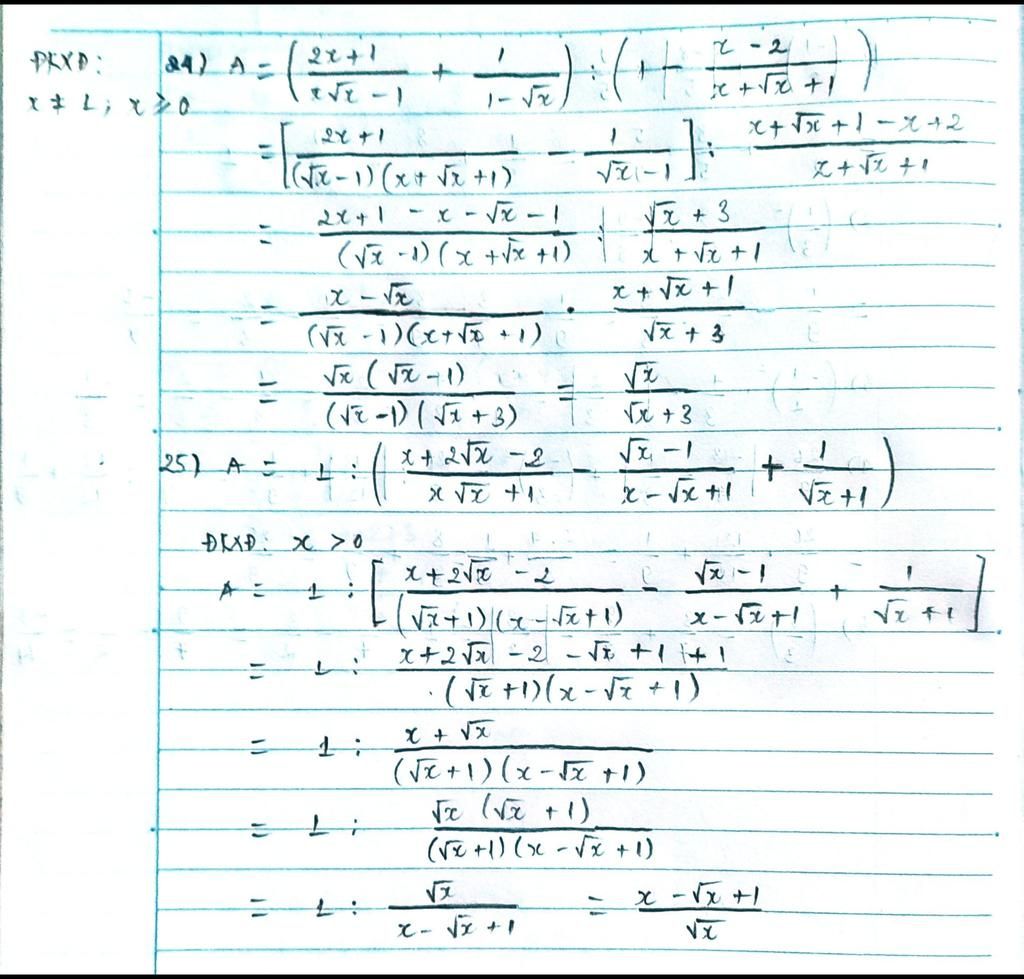 ĐKXĐ:
x ≠ 1; x ≥ 0
24) A = ( (2x+1)/(x√x − 1) + 1/(1−√x) ) : ( 1 − (x − 2)/(x+√x+1) )
= [ (2x+1)/((√x−1)(x+√x+1)) − 1/(√x−1) ] : (x+√x+1−x+2)/(x+√x+1)
= (2x+1 − x − √x − 1)/((√x−1)(x+√x+1)) : (√x + 3)/(x+√x+1)
= (x − √x)/((√x−1)(x+√x+1)) . (x+√x+1)/(√x + 3)
= (√x(√x−1))/((√x−1)(√x+3)) = √x/(√x+3)
25) A = 1 : ( (x+2√x−2)/(x√x+1) − (√x−1)/(x−√x+1) + 1/(√x+1) )
ĐKXĐ: x > 0
A = 1 : [ (x+2√x−2)/((√x+1)(x−√x+1)) − (√x−1)/(x−√x+1) + 1/(√x+1) ]
= 1 : (x+2√x−2−√x+1+1)/((√x+1)(x−√x+1))
= 1 : (x+√x)/((√x+1)(x−√x+1))
= 1 : (√x(√x+1))/((√x+1)(x−√x+1))
= 1 : √x/(x−√x+1) = (x−√x+1)/√x